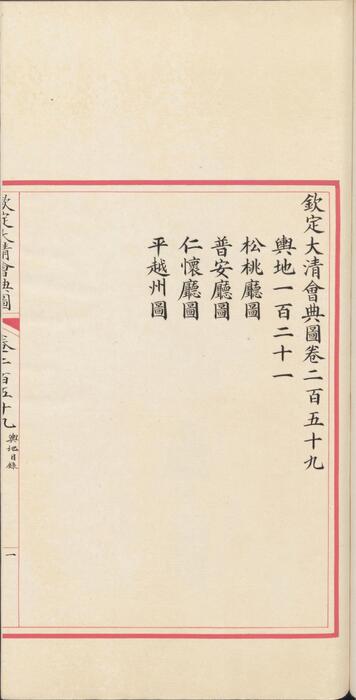 欽定大清會典圖卷二百五十九
輿地一百二十一
松桃廳圖
普安廳圖
仁懷廳圖
平越州圖
欽定大清會典圖
卷二百五十九
輿地目錄
一